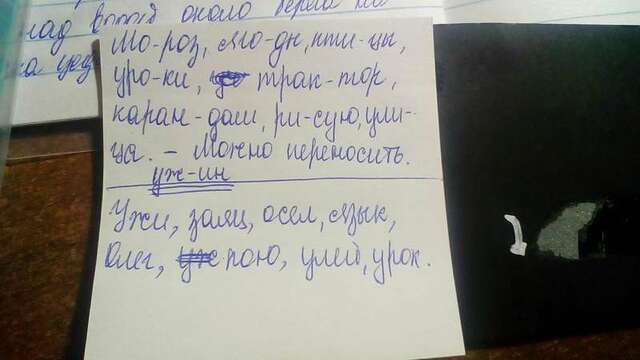 лад вокруг около берега
Мо-роз, яго-ды, пти-цы,
уро-ки, трак-тор,
каран-даш, ри-сую, ули-
ца. – Можно переносить.
уж-ин
Ужи, заяц, осел, язык,
Олег, пою, улей, урок.